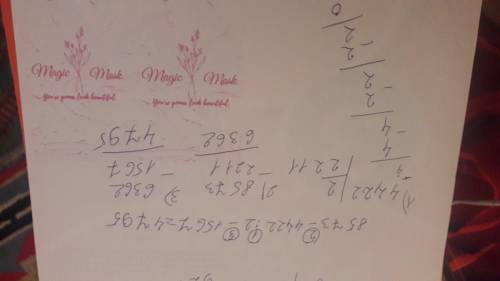 8573 - 4422 : 2 - 1567 = 4795
② ① ③
1) 4422 | 2
- 4 2211
4
- 4
2
- 2
2
- 2
0
2) 8573
- 2211
6362
3) 6362
- 1567
4795
Magic Mask
You're gonna look beautiful
Magic Mask
You're gonna look beautiful